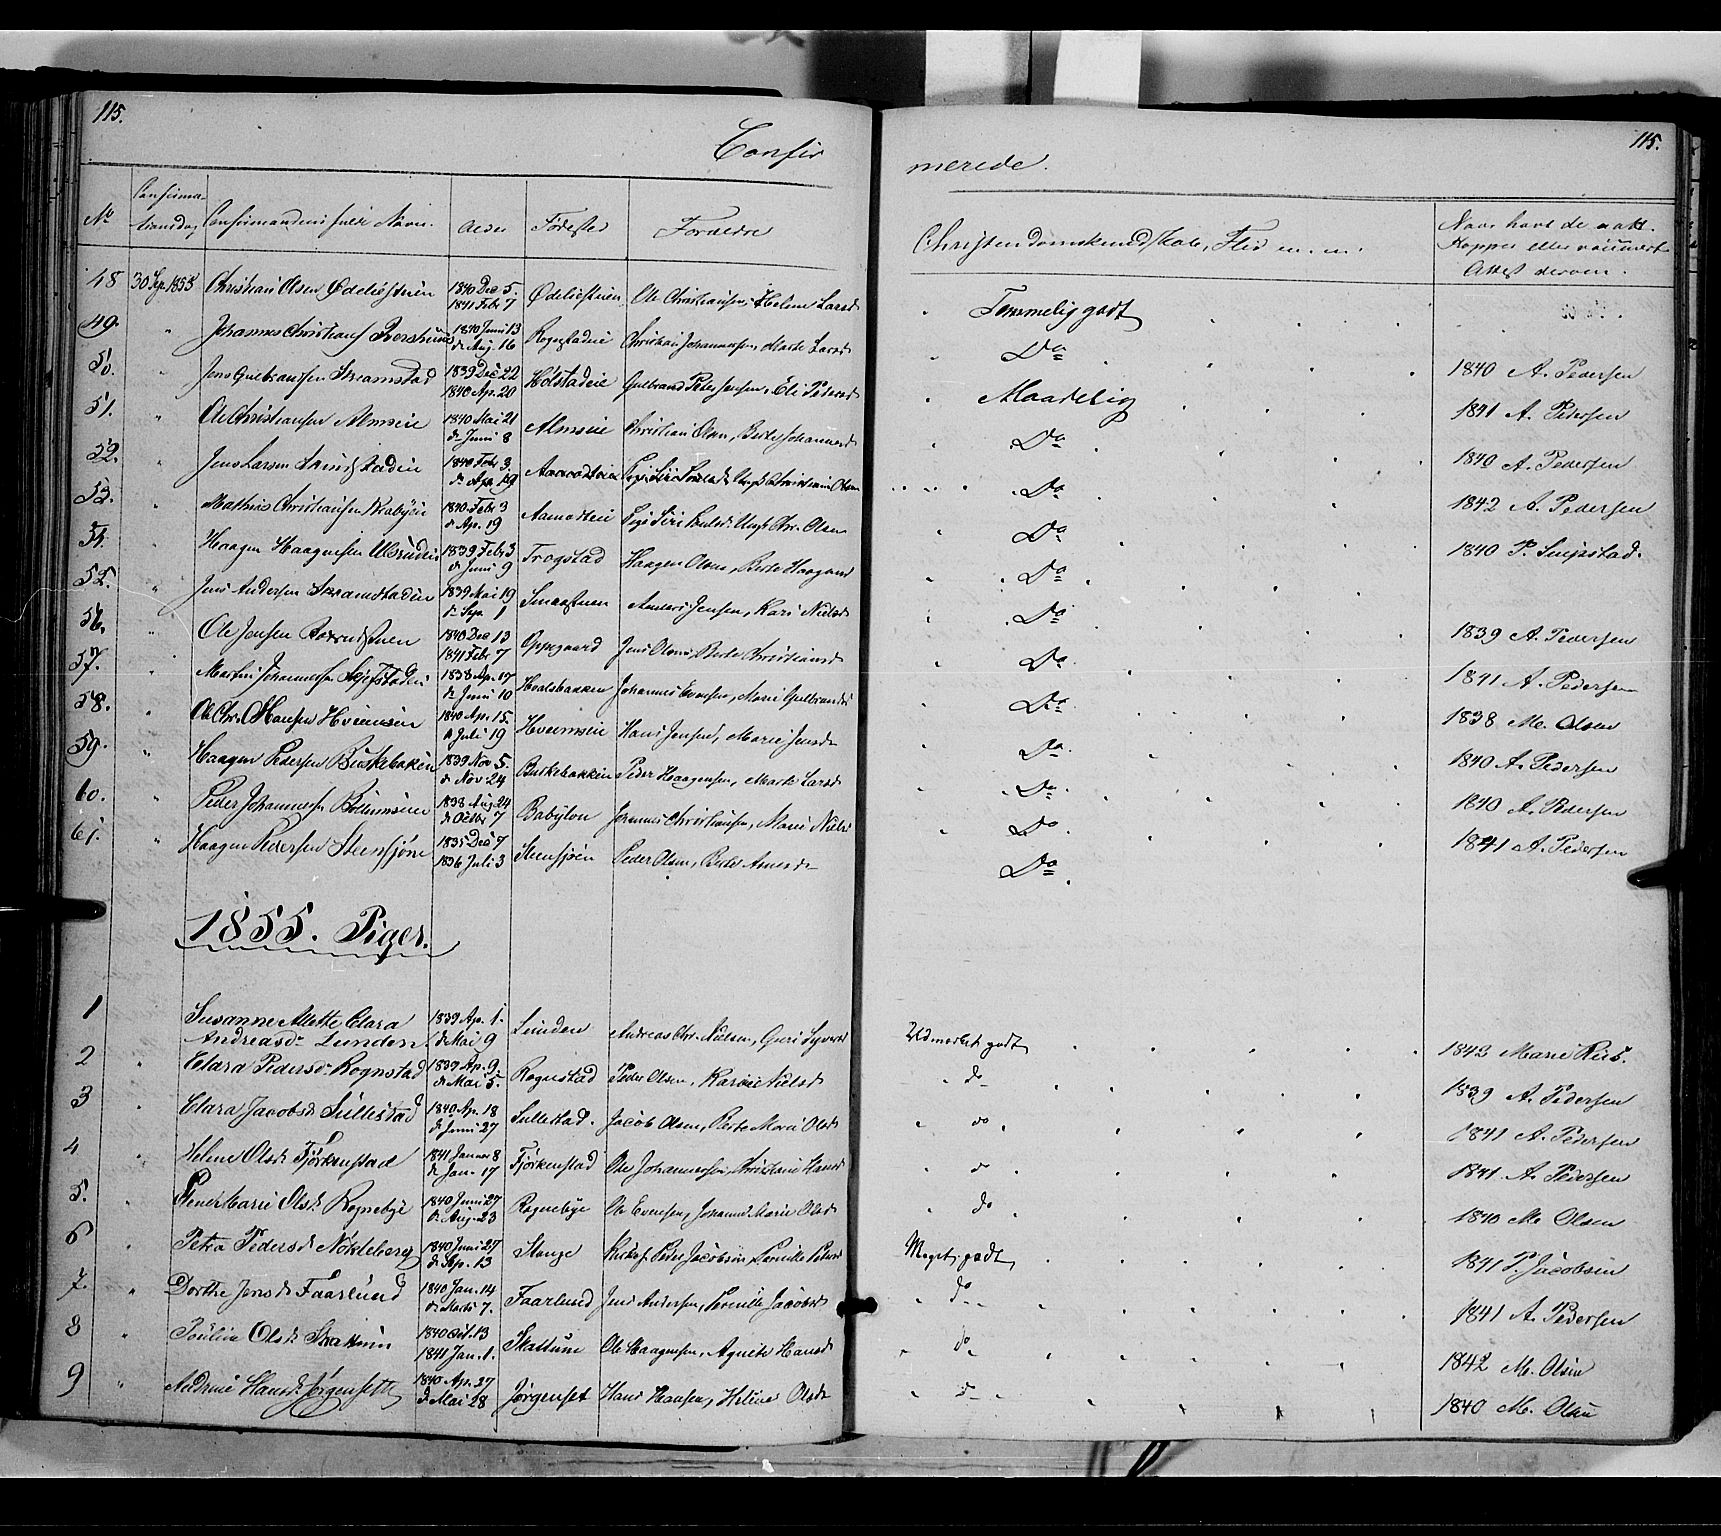 115.
115.
Confir
merede.
No
Confirma-
tionsdag
Confirmandens fulde Navn.
Alder
Fødested
Forældre
Christendomskundskab, Flid m. m.
Naar havt de natl.
Kopper eller vaccineret
Attest derom.
48 30 Sep. 1855 Christian Olsen Ødeliestuen 1840 Dec 5. 1841 Febr 7 Ødeliestuen Ole Christiansen, Helene Larsd. Temmelig godt
49. " Johannes Christians. 1840 Juni 13 do Aug. 16 Rognstadeie Christian Johannessen, Marte Larsd. Do 1840 A. Pedersen
50. " Jens Gulbransen Skramstad 1839 Dec 22 1840 Ap. 20 Holstadeie Gulbrand Jensen, Eli Pedersd. Maadelig 1841 A. Pedersen
51. " Ole Christiansen Almseie 1840 Mai 21 do Juni 8 Almseie Christian Olsen, Berte Johannesd. Do 1840 A. Pedersen
52. " Jens Larsen 1840 Febr 3. do Apr. 19 Do 1842 A. Pedersen
53. " Mathias Christiansen 1840 Febr 3 do Ap. 19 Aamodteie Pige Siri Ungk. Chr. Olsen Do 1840 P. Snipstad.
54. " Haagen Haagensen 1839 Febr 3 do Juni 9 Trogstad Haagen Olsen, Berte Haagensd. Do
55. " Jens Andersen Skramstadeie 1839 Mai 19 do Sep. 1 Smaastuen Anders Jensen, Kari Nielsd. Do 1839 A. Pedersen
56. " Ole Jensen 1840 Dec 13 1841 Febr 7 Oppegaard Jens Olsen, Berte Christiansd. Do 1841 A. Pedersen
57. " Martin Johannessen 1838 Ap. 17 do Juni 10 Hvalsbakken Johannes Evensen, Marie Gulbrandsd. Do 1838 M. Olsen
58. " Ole Chr. Hansen Hveemseie 1840 Apr. 15. do Juli 19 Hveemseie Hans Jensen, Marie Jensd. Do 1840 A. Pedersen
59. " Haagen Pedersen Birkebakken 1839 Nov 5. do Nov. 24 Birkebakken Peder Haagensen, Marte Larsd. Do 1840 A. Pedersen
60. " Peder Johannessen 1838 Aug. 24 do Octbr 7 Babylon Johannes Christiansen, Marie Nielsd. Do 1841 A. Pedersen
61. " Haagen Pedersen Steensjøen 1835 Dec 7 1836 Juli 3 Steensjøen Peder Olsen, Berte Arnesd. Do
1855. Piger.
1 Susanne Mette Clara
Andreasd. Lunden 1839 Ap. 1. do Mai 9 Lunden Andreas Chr. Nielsen, Guri Syversd. Udmærket godt 1843 Marie Riis.
2 " Clara Pedersd. Rognstad 1839 Ap. 9 do Mai 5. Rognstad Peder Olsen, Karine Nielsd. do 1839 A. Pedersen
3 " Clara Jacobsd. Sullestad 1840 Ap. 18 do Juni 27 Sullestad. Jacob Olsen, Berte Marie Olsd. do 1841 A. Pedersen
4 " Helene Olsd. Fjørkenstad 1841 Januar 8 do Jan. 17 Fjørkenstad Ole Johannessen, Christine Hansd. do 1841 A. Pedersen
5. " Marie Olsd. Rognebye 1840 Juni 27 do Aug. 23 Rognebye Ole Evensen, Johanne Marie Olsd. do 1840 M. Olsen
6 " Petra Pedersd. Nøkleberg 1840 Juni 27 do Sep. 13 Stange Peder Jacobsen, Pernille Pedersd. Meget godt 1841 P. Jacobsen
7. " Dorthe Jensd. Faarlund 1840 Jan. 14 do Marts 7. Faarlund Jens Andersen, Pernille Jacobsd. do 1841 A. Pedersen
8 " Pauline Olsd. Skattum 1840 Oct. 13 1841 Jan. 1. Skattum Ole Haagensen, Agnete Hansd. do 1842 M. Olsen
9 " Andrine Hansd. Jørgensett 1840 Ap. 27 do Mai 28 Jørgenset Hans Hansen, Helene Olsd. do 1840 M. Olsen